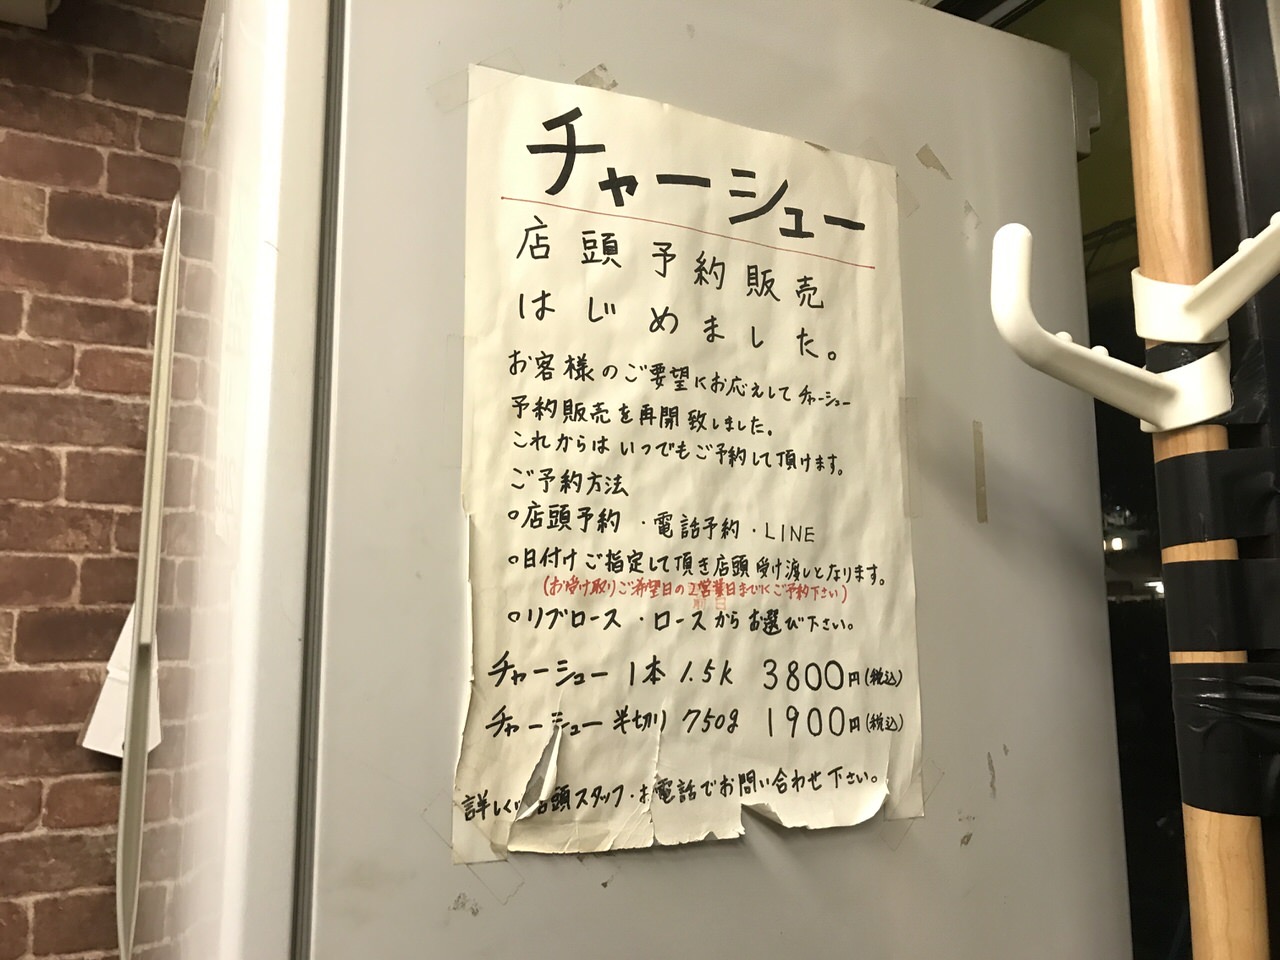 チャーシュー
店頭予約販売
はじめました。
お客様のご要望にお応えして チャーシュー
予約販売を再開致しました。
これからは いつでもご予約して頂けます。
ご予約方法
○店頭予約 ・電話予約・LINE
○日付けご指定して頂き店頭受け渡しとなります。
(お受け取りご希望日の 営業日までにご予約下さい)
前日
○リブロース ・ロースからお選び下さい。
チャーシュー 1本 1.5K 3800円(税込)
チャーシュー 半切り 750g 1900円(税込)
詳しくは店頭スタッフ・お電話でお問い合わせ下さい。